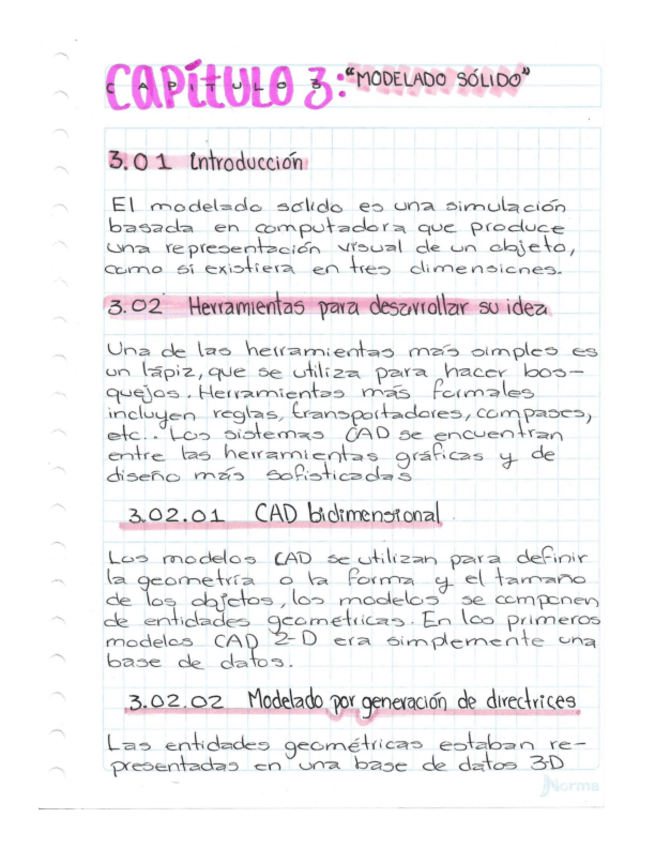 CAPÍTULO 3: "MODELADO SÓLIDO"
CAPITULO 3
3.01 Introducción
El modelado sólido es una simulación
basada en computadora que produce
una representación visual de un objeto,
como si existiera en tres dimensiones.
3.02 Herramientas para desarrollar su idea
Una de las herramientas más simples es
un lápiz, que se utiliza para hacer bos-
quejos. Herramientas más formales
incluyen reglas, transportadores, compases,
etc.. Los sistemas CAD se encuentran
entre las herramientas gráficas y de
diseño más sofisticadas
3.02.01 CAD bidimensional
Los modelos CAD se utilizan para definir
la geometría o la forma y el tamaño
de los objetos, los modelos se componen
de entidades geométricas. En los primeros
modelos CAD 2-D era simplemente una
base de datos.
3.02.02 Modelado por generación de directrices
Las entidades geométricas estaban re-
presentadas en una base de datos 3-D
Norma